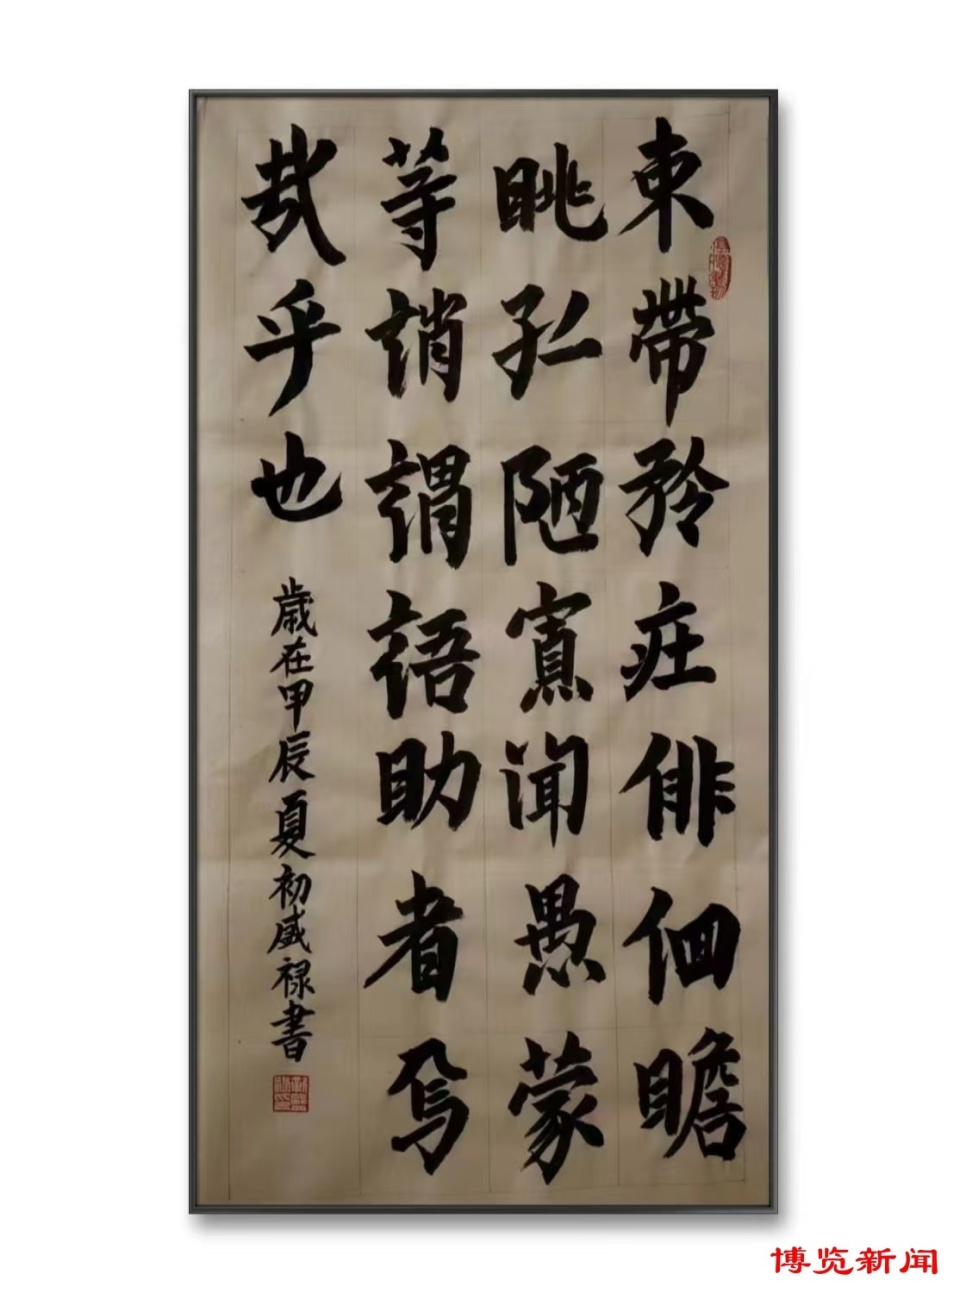 束帶矜庄俳佪瞻
眺孤陋寡闻愚蒙
等誚謂語助者焉
哉乎也
歲在甲辰夏初盛禄書
博览新闻